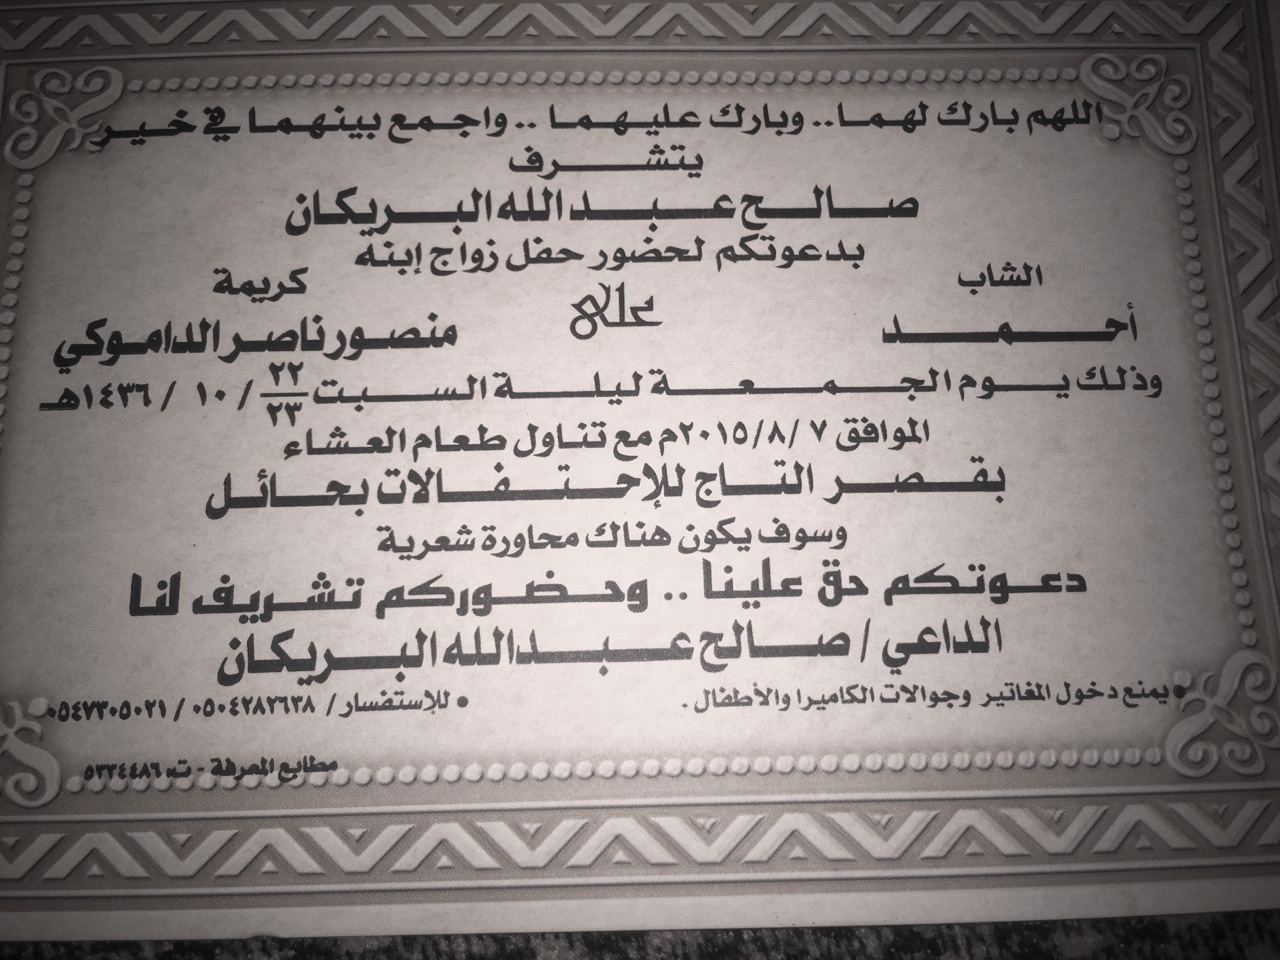 اللهم بارك لهما.. وبارك عليهما .. واجمع بينهما في خير
يتشرف
صالح عبدالله البريكان
بدعوتكم لحضور حفل زواج إبنه
الشاب
أحمد
على
كريمة
منصور ناصر الداموكي
وذلك يوم الجمعة ليلة السبت ٢٢/٢٣ / ١٠ / ١٤٣٦هـ
الموافق ٧ /٢٠١٥/٨م مع تناول طعام العشاء
بقصر التاج للإحتفالات بحائل
وسوف يكون هناك محاورة شعرية
دعوتكم حق علينا .. وحضوركم تشريف لنا
الداعي / صالح عبدالله البريكان
• يمنع دخول المفاتير وجوالات الكاميرا والأطفال .
• للإستفسار / ٠٥٠٤٢٨٢٦٣٨ / ٠٥٤٧٣٠٥٠٢١
مطابع المعرفة - ت: ٥٣٣٤٤٨٦